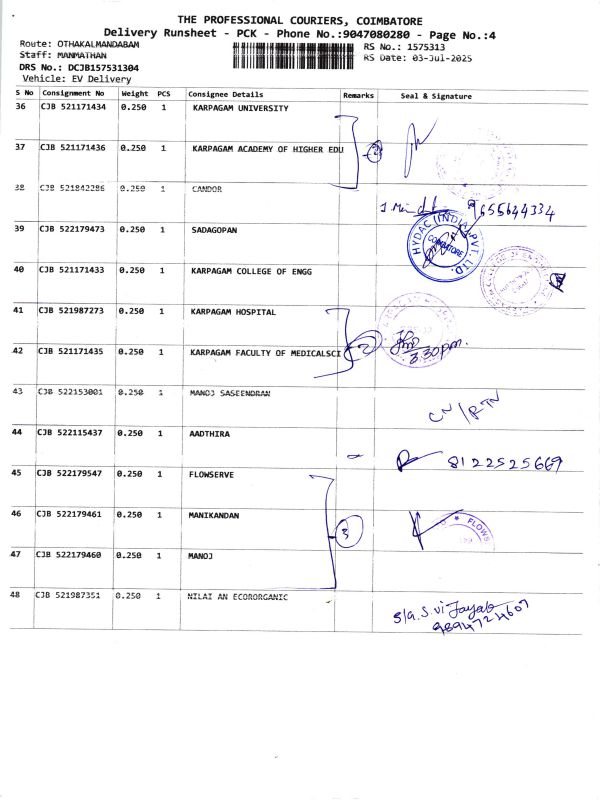 THE PROFESSIONAL COURIERS, COIMBATORE
Delivery Runsheet - PCK - Phone No.:9047080280 - Page No.:4
Route: OTHAKALMANDABAM
Staff: MANMATHAN
DRS No.: DCJB157531304
Vehicle: EV Delivery
RS No.: 1575313
RS Date: 03-Jul-2025
S No Consignment No Weight PCS Consignee Details Remarks Seal & Signature
36 CJB 521171434 0.250 1 KARPAGAM UNIVERSITY
37 CJB 521171436 0.250 1 KARPAGAM ACADEMY OF HIGHER EDU
38 CJB 521842286 0.250 1 CANDOR
9655644334
39 CJB 522179473 0.250 1 SADAGOPAN
HYDAC (INDIA) PVT. LTD.
COIMBATORE
40 CJB 521171433 0.250 1 KARPAGAM COLLEGE OF ENGG
41 CJB 521987273 0.250 1 KARPAGAM HOSPITAL
42 CJB 521171435 0.250 1 KARPAGAM FACULTY OF MEDICALSCI 2
3.30pm.
43 CJB 522153001 0.250 1 MANOJ SASEENDRAN
CN/RTN
44 CJB 522115437 0.250 1 AADTHIRA
8122525669
45 CJB 522179547 0.250 1 FLOWSERVE
46 CJB 522179461 0.250 1 MANIKANDAN 3 FLOWS
47 CJB 522179460 0.250 1 MANOJ
48 CJB 521987351 0.250 1 NILAI AN ECORORGANIC
9894724607